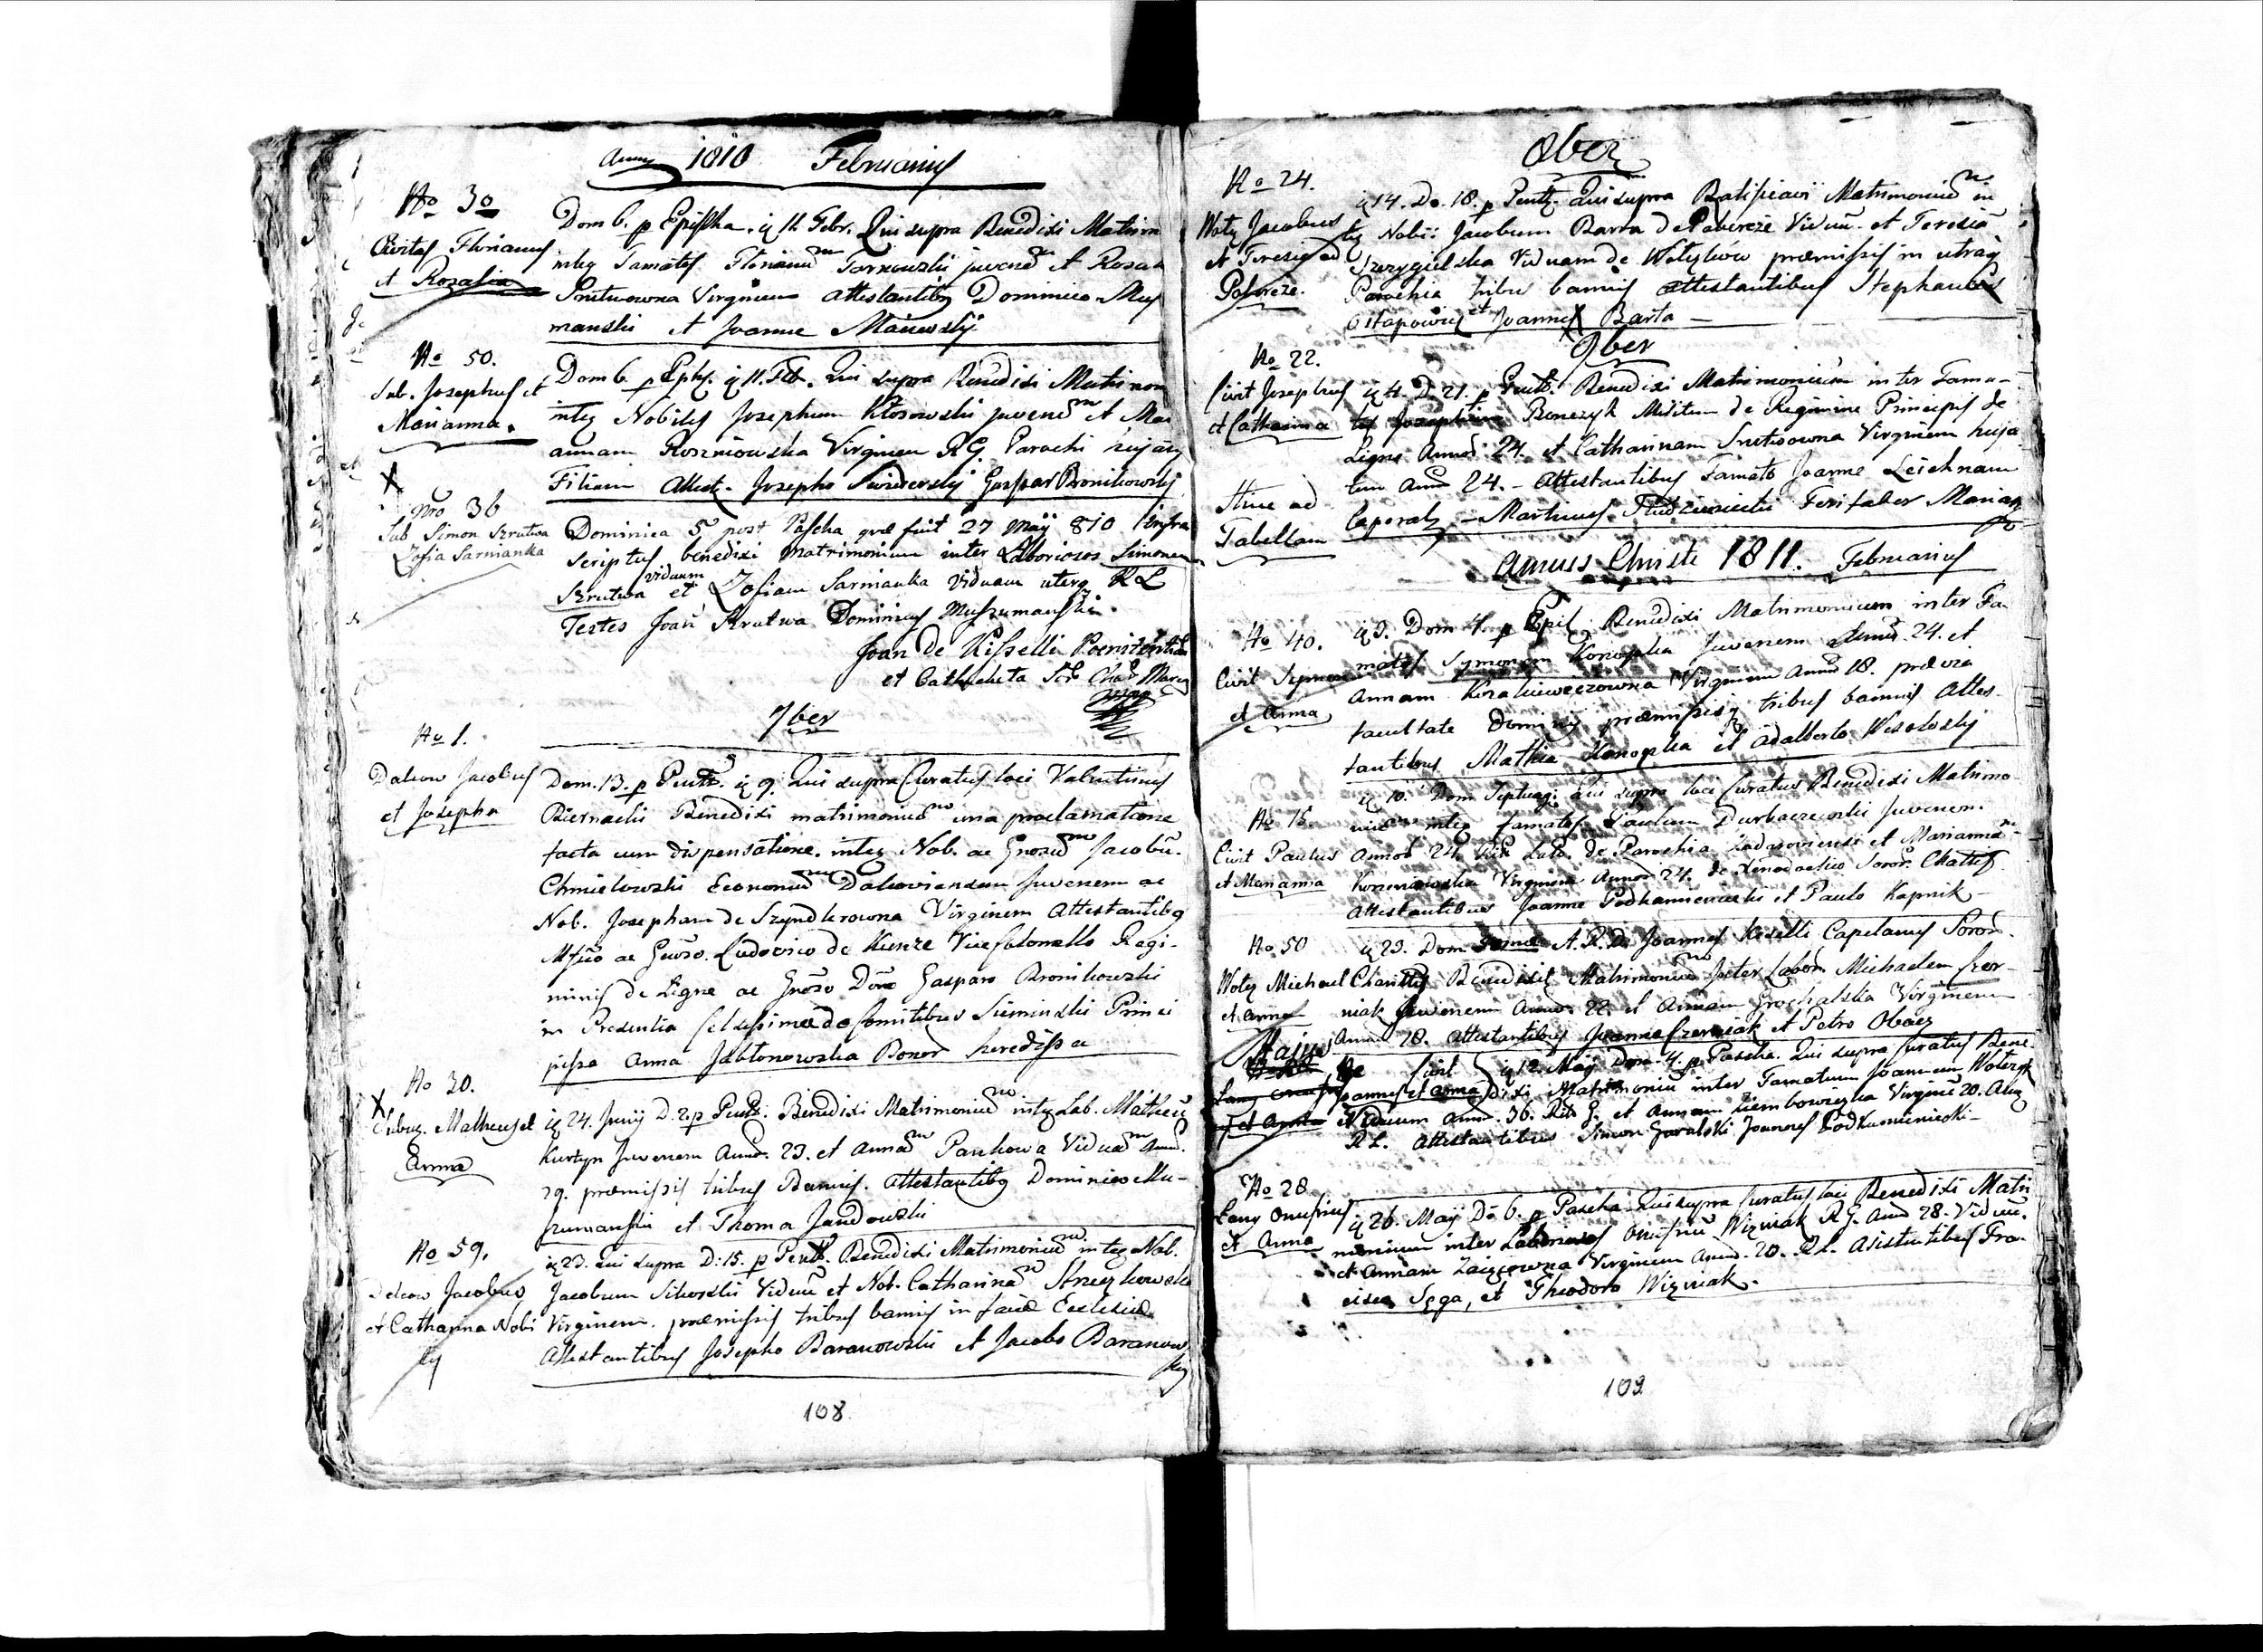 Anno 1810 Februarius
No 30
Civitas Florianus
et Rozalia
Dom 6. p Epipha. q 11 Febr. Qui supra Benedixi Matrim
inter Famatos Florianum Tarnowski juvenem et Rosal
Srutwowna Virginem attestantibus Dominico Mus
manski et Joanne
No 50.
Sub. Josephus et
Marianna.
Dom 6 p Eph. q 11. Feb. Qui supra Benedixi Matrimon
inter Nobiles Josephum Kłosowski juvenem et Mari
annam Rozniowska Virginem R G. Parochi hujus
Filiam Attest. Josepho Swiderski Gaspar Bronikowski
Nro 36
Sub Simon Szrutwa
Zofia Sarnianka
Dominica 5 post Pascha quæ fuit 27 Maÿ 810 Infra
Scriptus benedixi matrimonium inter Laboriosos Simonem
viduum
Szrutwa et Zofiam Sarnianka Viduam uterq R L
Testes Joan Szrutwa Dominicus Muszumanski
Joan de Kisselli Poenitentia
et Cathecheta
7ber
No 1.
Daliow Jacobus
et Josepha
Dom. 13. p Pent. q 9. Qui supra Curatus loci Valentinus
Biernacki Benedixi matrimonium una proclamatione
facta cum dispensatione. inter Nob. ac Gnosum Jacobu.
Chmielowski Economum Juvenem ac
Nob. Josepham de Szyndlerowna Virginem Attestantibq
ac Ludovico de Kunze Vice Colonello Regi-
minis de Ligne ac Gnoso Dno Gasparo Bronikowski
in Presentia de Comitibus Sieminski Princi
pissa Anna Jabłonowska Bonor heredissa
No 30.
Subuz. Matheus et
Anna
q 24. Junij D. 2. p Pent. Benedixi Matrimonium inter Lab. Matheu
Kurtyn Juvenem Annor. 23. et Annam Pankowa Viduam Ann.
29. præmissis tribus Bannis. Attestantibq Dominico Mu-
szumanski et Thoma Jandowski
No 59.
Jacobus
et Catharina Nobi
les
q 23. Qui supra D. 15. p Pent. Benedixi Matrimonium inter Nob.
Jacobum Sikorski Viduu et Nob. Catharinam
Virginem. præmissis tribus bannis in facie Ecclesiæ
Attestantibus Josepho Baranowski et Jacobo Baranow
ski
108
8ber
No 24.
Woty Jacobus
et Teresia ad
q 14. Do. 18. p Pent. Qui supra Ratificavi Matrimonium in
ter Nobi: Jacobum Barta de Vidun. et Teresia
Szczygielska Viduam de Wotyków præmissis in utraq
Parochia tribus bannis attestantibus Stephanus
Ostapowicz et Joannes Barta
9ber
No 22.
Civit Josephus
et Catharina
q 4. D. 21. p Pent. Benedixi Matrimonium inter Fama-
tos Josephum Bonczyk Militem de Regimine Principis de
Ligne Annor. 24. et Catharinam Srutwowna Virginem huja
tem Ann 24. - Attestantibus Famato Joanne Leichnam
Caporals - Martinus
Hinc ad
Tabellam
Annus Christi 1811. Februarius
No 40.
Civit
et Anna
q 3. Dom 4. p Epil Benedixi Matrimonium inter Fa
matos Symonem Konopka Juvenem Annor. 24. et
Annam Virginem Annor 18. prævia
facultate Dominij præmissisq tribus bannis Attes-
tantibus Mathia Konopka et Adalberto Wesołoski
No 15.
Civit Paulus
et Marianna
q 10. Dom Septuag. Qui supra loci Curatus Benedixi Matrimo-
nium inter famatos Paulum Juvenem.
Annor 24. de Parochia et Mariannam
Virginem Annor 24. de Soror. Charit
Attestantibus Joanne et Paulo Kapnik
No 50
Woty Michael
et Anna
q 23. Dom A. R. D. Joannes Kiselli Capelanus Soror.
Charitt. Benedixit Matrimonium Inter Labor. Michaelem Czer-
niak Juvenem Annor. 22. et Annam Grochalska Virginem
Ann 18. attestantibus Joanne Czerniak et Petro Obacz
Majus
Civit
Joannes et Anna
q 12. Maij Dom. 4. p Pascha. Qui supra Curatus Bene-
dixi Matrimoniu inter Famatum Joannem
Viduum Ann. 36. Rit. G. et Annam Virginē 20. Ann
R L. Attestantibus Simon Goralski Joannes Podkamieniecki
No 28
Lany Onufrius
et Anna
q 26. Maij D. 6. p Pascha Qui supra Curatus loci Benedixi Matri
monium inter Laboriosos Onufriu Wizniak R G. Ann 28. Viduu.
et Annam Zaięcowna Virginem Ann. 20. R L. Asistentibus Fra-
cisco Sęga, et Theodoro Wizniak.
109